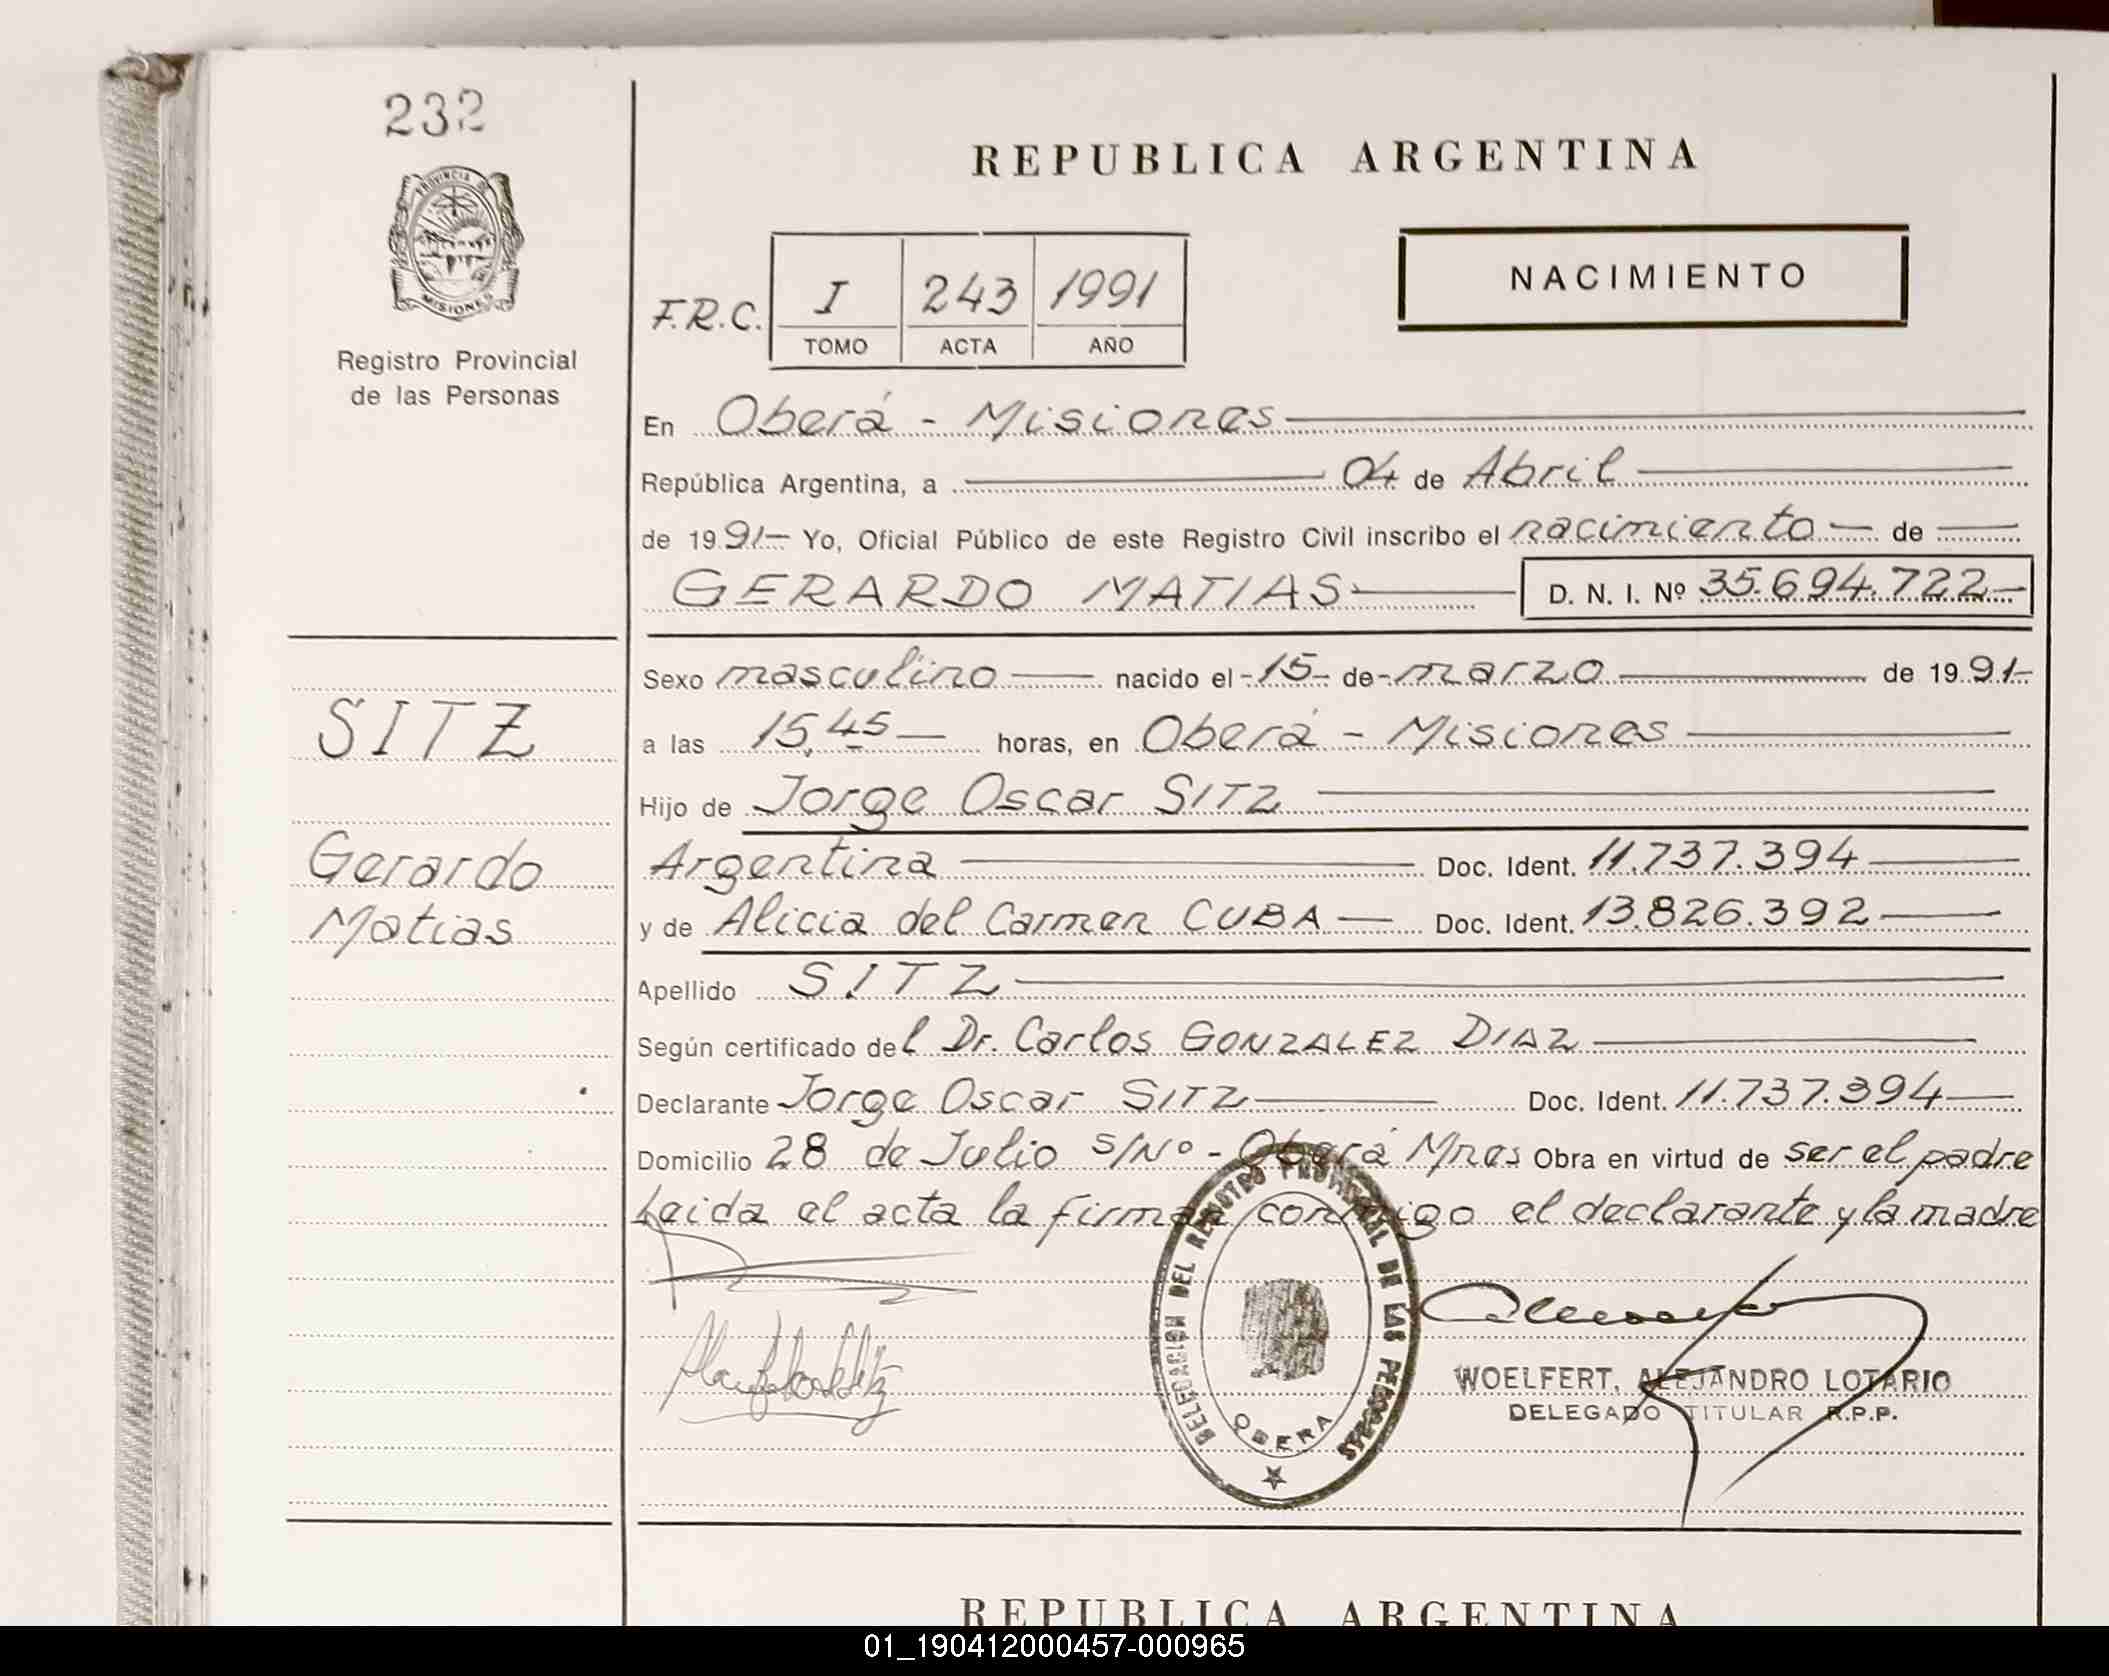 232
PROVINCIA DE
MISIONES
Registro Provincial
de las Personas
SITZ
Gerardo
Matias
REPUBLICA ARGENTINA
NACIMIENTO
F.R.C. I 243 1991
TOMO ACTA AÑO
En Oberá - Misiones
República Argentina, a 04 de Abril
de 1991- Yo, Oficial Público de este Registro Civil inscribo el nacimiento de
GERARDO MATIAS D. N. I. Nº 35.694.722
Sexo masculino nacido el -15- de - marzo de 1991-
a las 15,45 horas, en Oberá - Misiones
Hijo de Jorge Oscar SITZ
Argentina Doc. Ident. 11.737.394
y de Alicia del Carmen CUBA Doc. Ident. 13.826.392
Apellido SITZ
Según certificado del Dr. Carlos GONZALEZ DIAZ
Declarante Jorge Oscar SITZ Doc. Ident. 11.737.394
Domicilio 28 de Julio S/Nº - Oberá Mnes Obra en virtud de ser el padre
Leida el acta la firman conmigo el declarante y la madre
DELEGACION DEL REGISTRO PROVINCIAL DE LAS PERSONAS
OBERA
WOELFERT, ALEJANDRO LOTARIO
DELEGADO TITULAR R.P.P.
REPUBLICA ARGENTINA
01_190412000457-000965